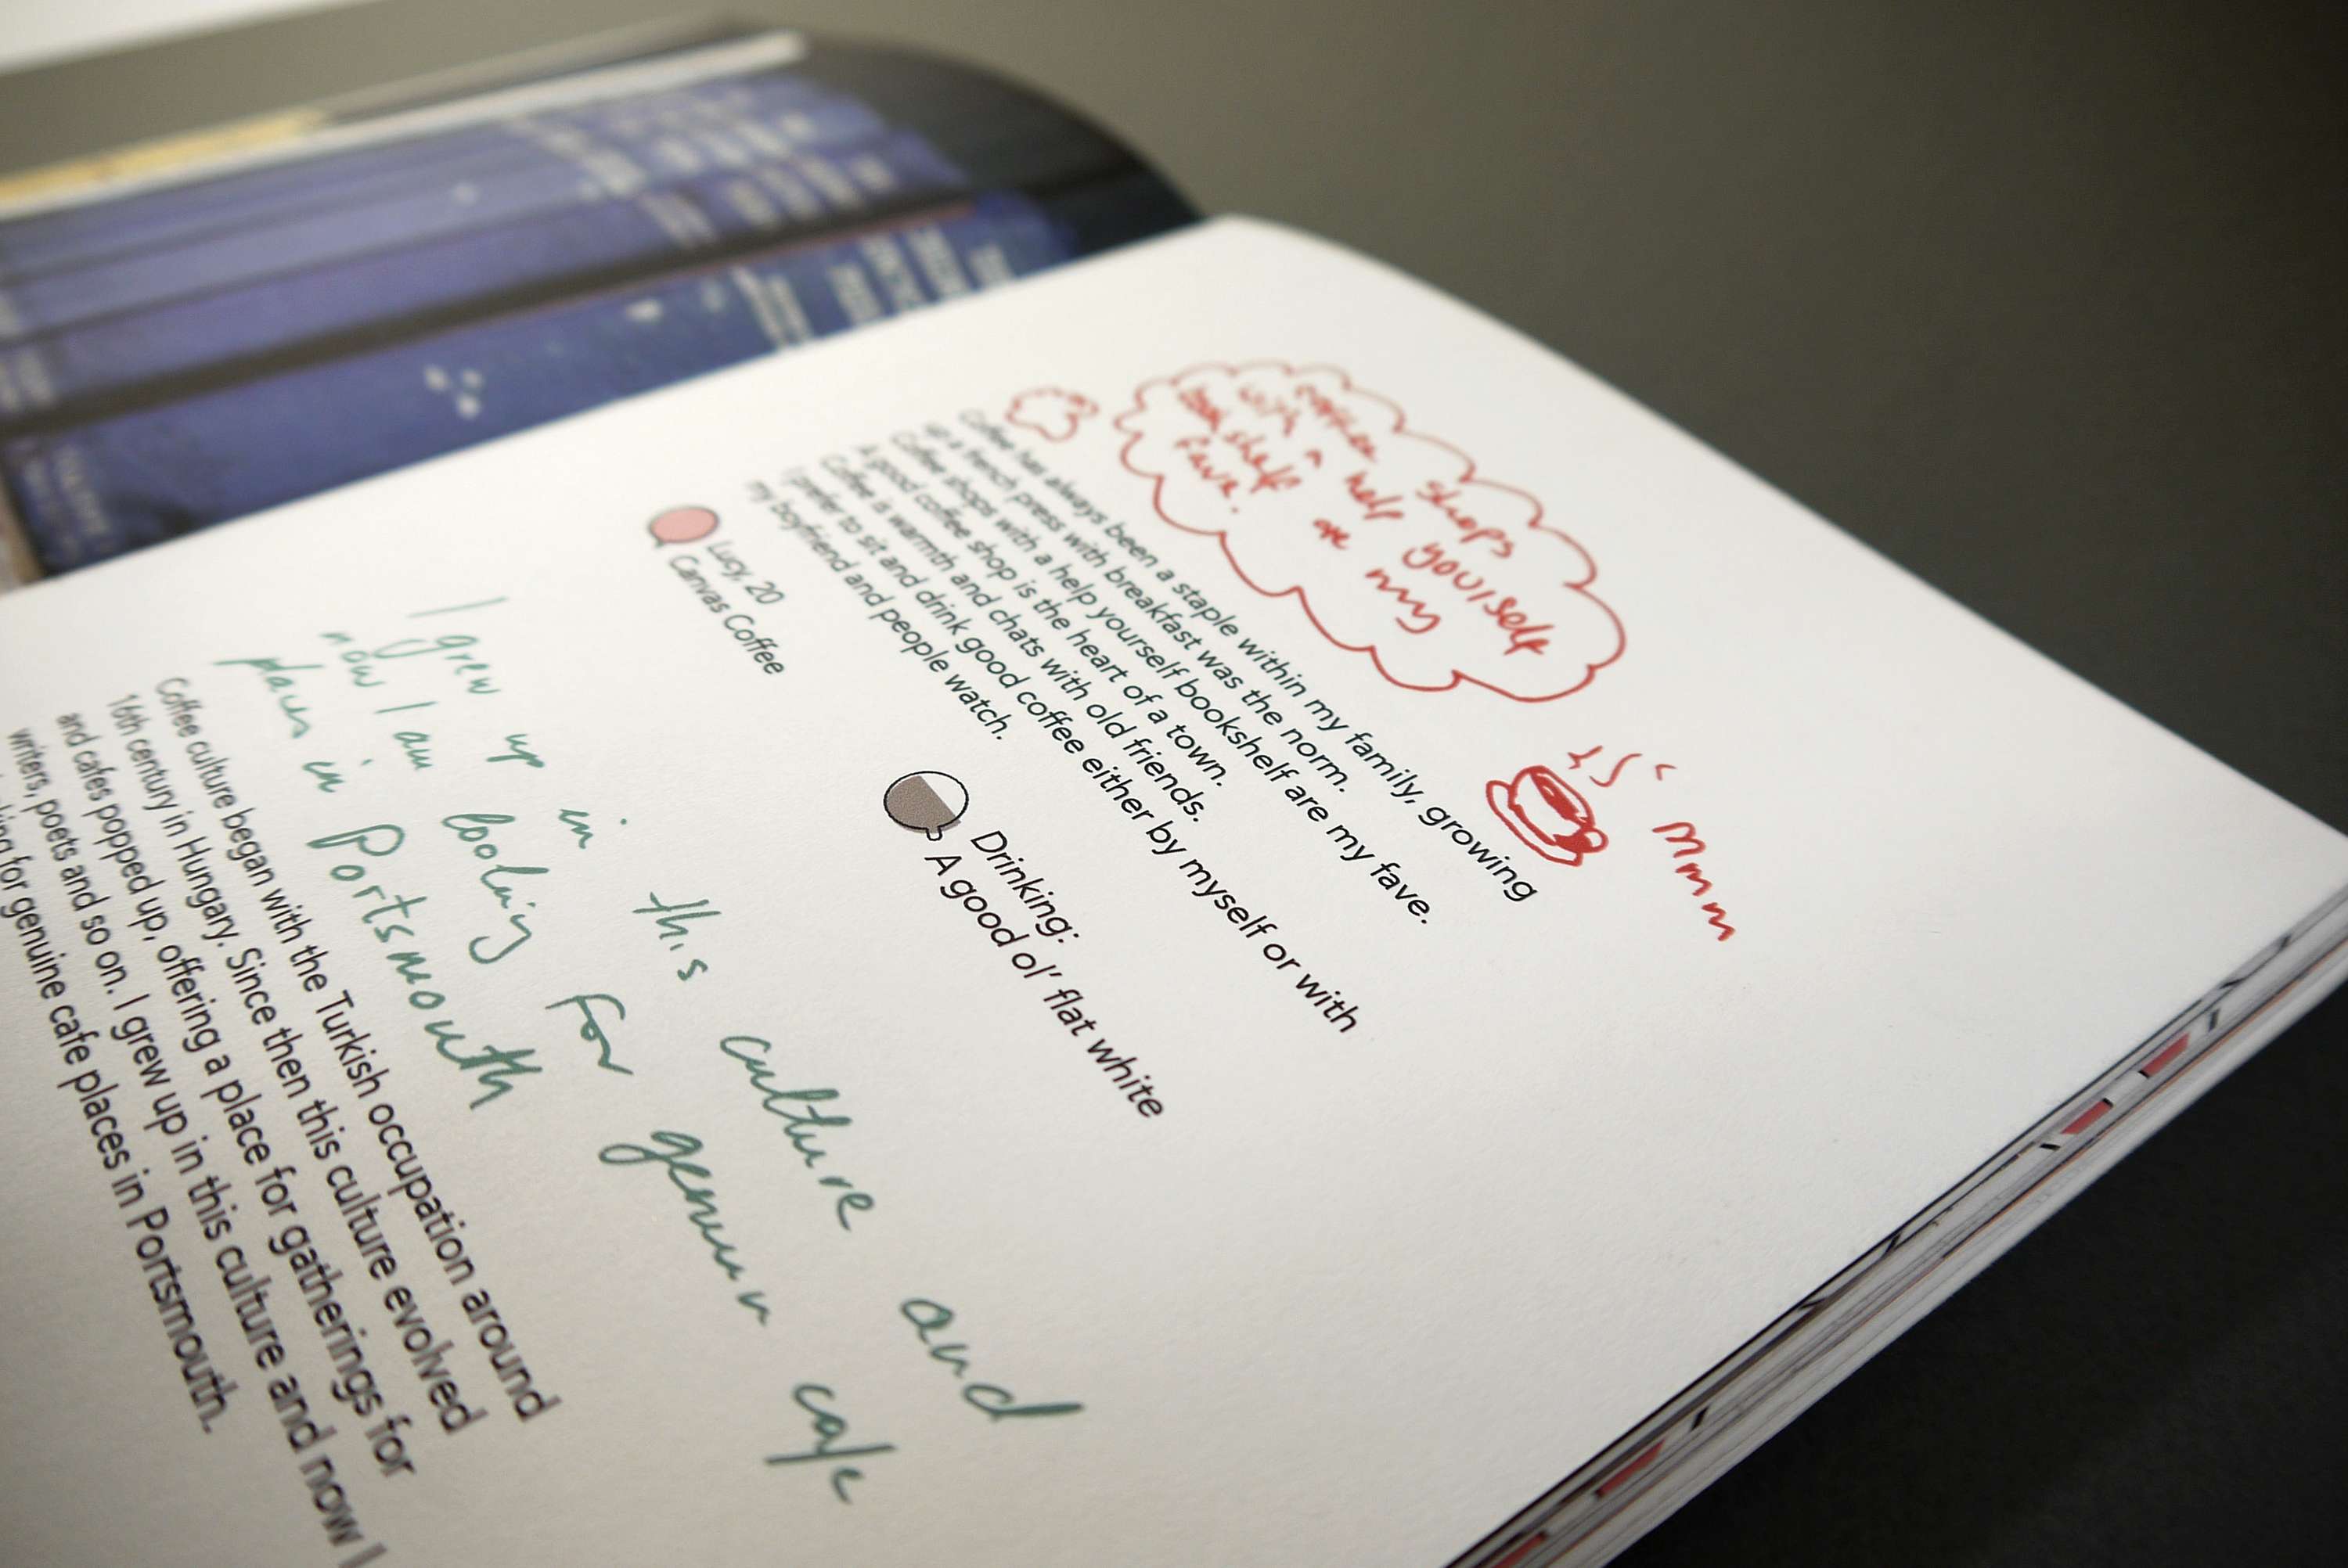 coffee shops
with ^ help yourself
book shelf are my
fave.
Mmm
Coffee has always been a staple within my family, growing
up a french press with breakfast was the norm.
Coffee shops with a help yourself bookshelf are my fave.
A good coffee shop is the heart of a town.
Coffee is warmth and chats with old friends.
I prefer to sit and drink good coffee either by myself or with
my boyfriend and people watch.
Lucy, 20
Canvas Coffee
Drinking:
A good ol' flat white
I grew up in this culture and
now I am looking for genuin cafe
places in Portsmouth
Coffee culture began with the Turkish occupation around
16th century in Hungary. Since then this culture evolved
and cafes popped up, offering a place for gatherings for
writers, poets and so on. I grew up in this culture and now I
for genuine cafe places in Portsmouth.